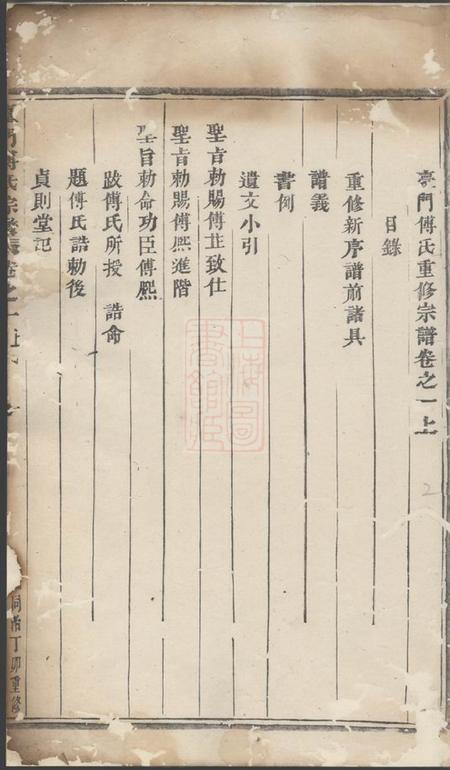 亭門傅氏重修宗譜卷之一上
目錄
重修新序譜前諸具
譜義
書例
遺文小引
聖旨勅賜傅芷致仕
聖旨勅賜傅熈進階
聖旨勅命功臣傅熈
跋傅氏所授 誥命
題傅氏誥勅後
貞則堂記
氏宗譜卷之一
同治丁卯重修
上海圖書館藏
2